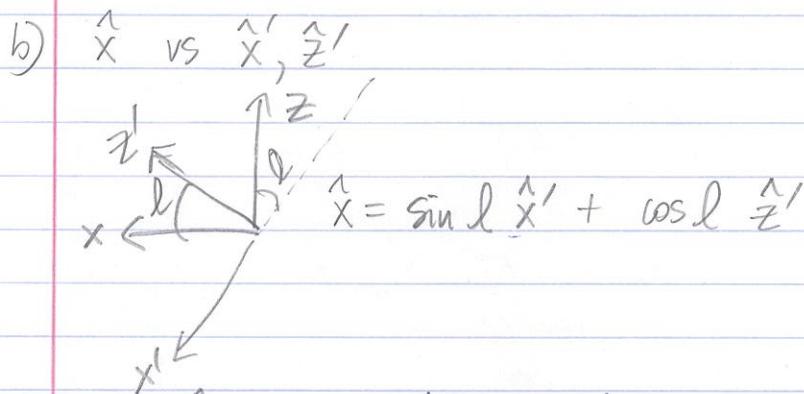 b) x̂ vs x̂', ẑ'
z
z'
l
l
x
x̂ = sin l x̂' + cos l ẑ'
x'